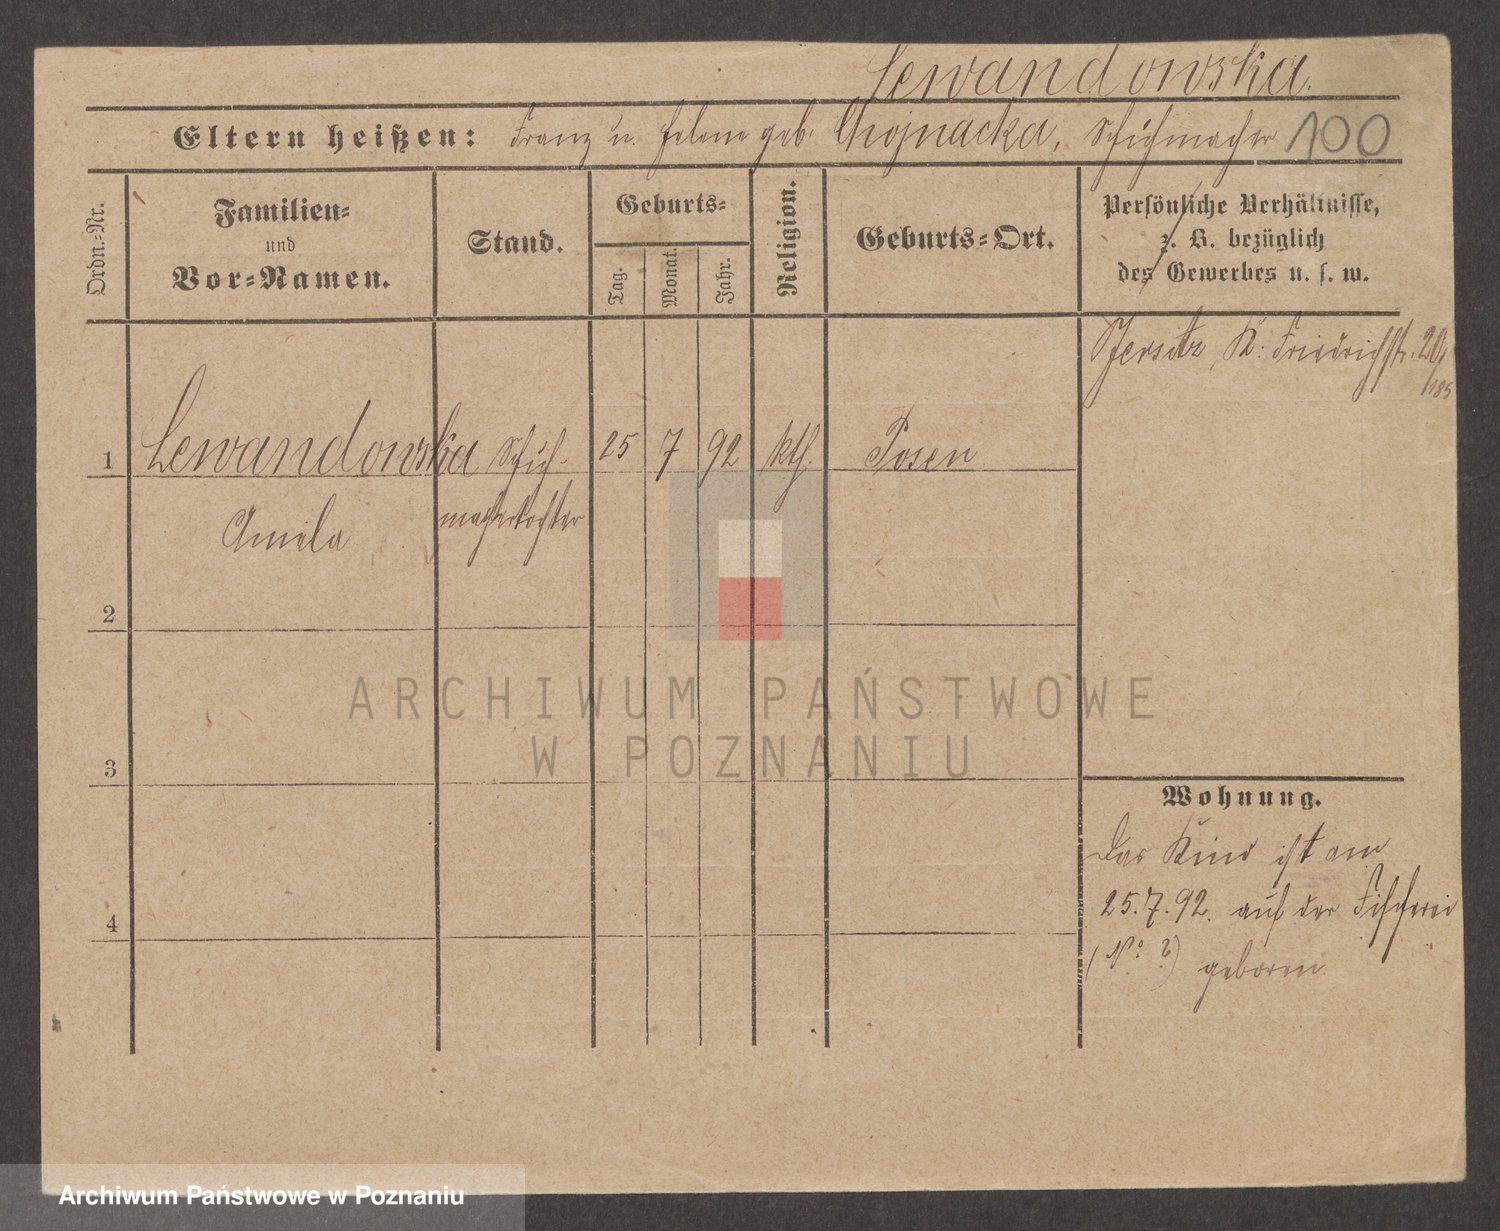 Lewandowska.
Eltern heißen: Franz u. Helene geb. Chojnacka, Schuhmacher 100
Ordn.-Nr.
Familien-
und
Vor-Namen.
Stand.
Geburts-
Tag.
Monat.
Jahr.
Religion.
Geburts-Ort.
Persönliche Verhältnisse,
z. B. bezüglich
des Gewerbes u. s. w.
Jersitz, K. Friedrichstr. 20
1 Lewandowska Schuh- 25 7 92 kth. Posen
Amela machertochter
2
3
4
Wohnung.
Das Kind ist am
25.7.92. auf der Fischerei
(No ?) geboren
ARCHIWUM PAŃSTWOWE
W POZNANIU
Archiwum Państwowe w Poznaniu